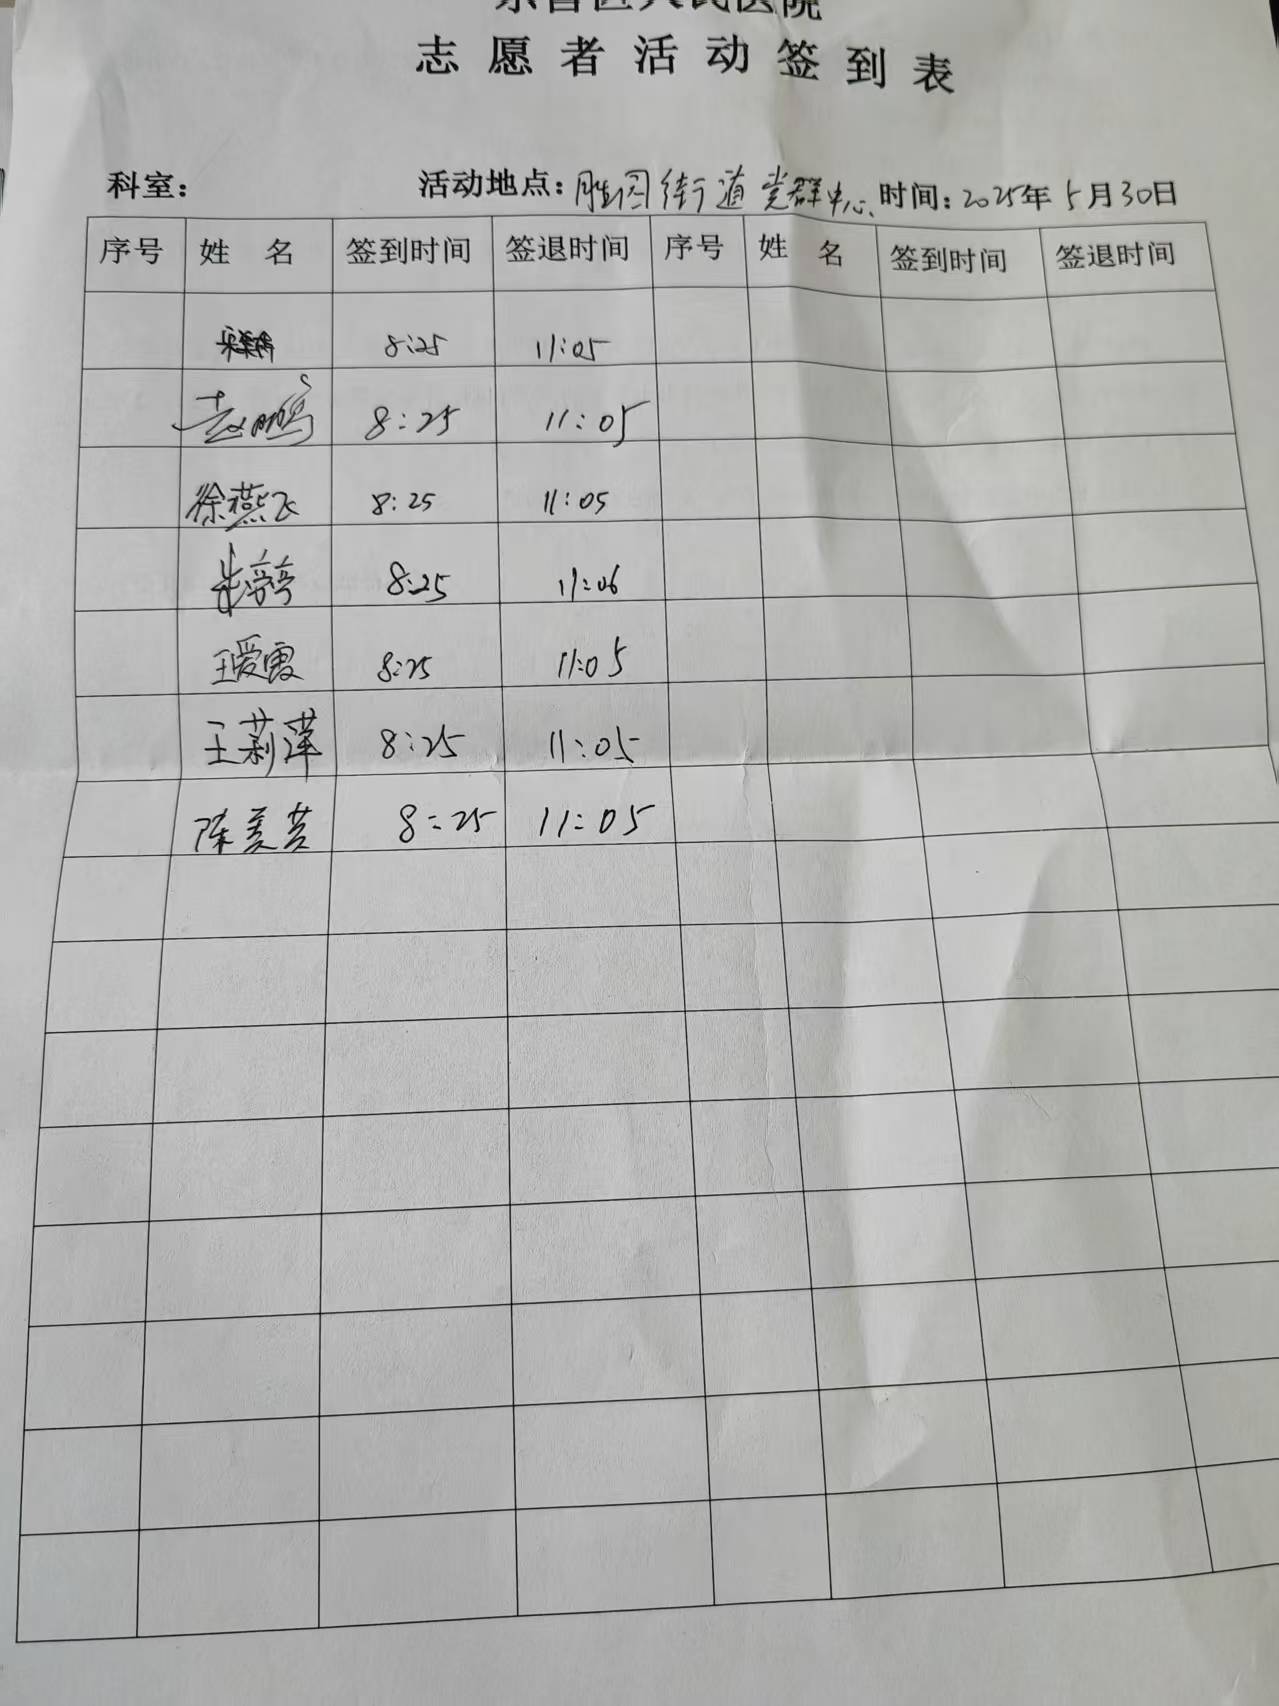 东营区人民医院
志愿者活动签到表
科室: 活动地点: 胜园街道党群中心 时间: 2025年5月30日
序号 姓名 签到时间 签退时间 序号 姓名 签到时间 签退时间
8:25 11:05
赵鹏 8:25 11:05
徐燕飞 8:25 11:05
8:25 11:06
王爱霞 8:25 11:05
王莉萍 8:25 11:05
陈美芸 8:25 11:05